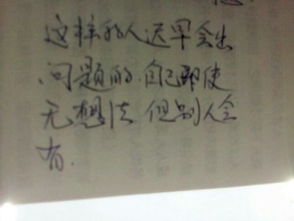 这样的人迟早会出
问题的.自己即使
无想法.但别人会
有.